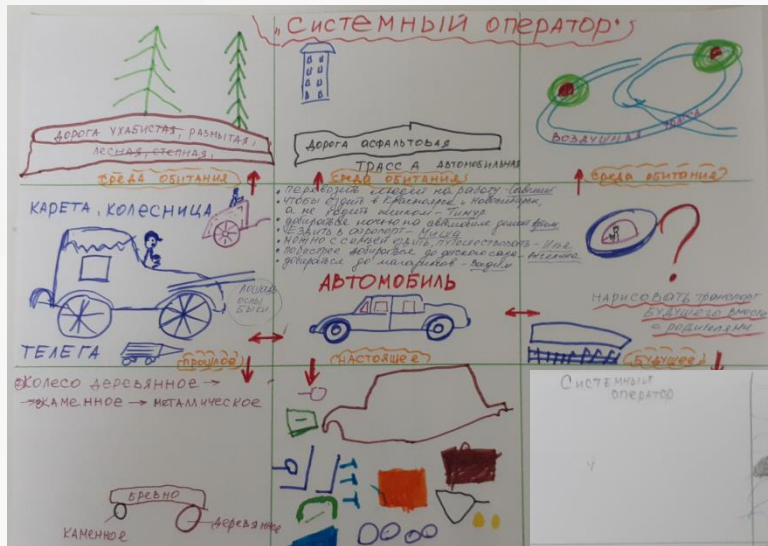 „Системный оператор"
ДОРОГА УХАБИСТАЯ, РАЗМЫТАЯ,
ЛЕСНАЯ, СТЕПНАЯ,
СРЕДА ОБИТАНИЯ
ДОРОГА АСФАЛЬТОВАЯ
ТРАССА АВТОМОБИЛЬНАЯ
СРЕДА ОБИТАНИЯ
ВОЗДУШНАЯ ТРАССА
СРЕДА ОБИТАНИЯ
КАРЕТА, КОЛЕСНИЦА
ЛОШАДЬ
ОСЛЫ
БЫКИ
ТЕЛЕГА
ПРОШЛОЕ
• перевозить людей на работу -
• чтобы ездить в Красноярск, Новосибирск,
а не ходить пешком - Тимур
• добираться можно на автомобиле домой
• ЕЗДИТЬ В аэропорт - Миша
• можно с семьей ездить, путешествовать -
• побыстрее добираться до детского сада -
• добираться до магазинов - Вадим
АВТОМОБИЛЬ
НАСТОЯЩЕЕ
?
НАРИСОВАТЬ транспорт
БУДУЩЕГО вместе
с родителями
БУДУЩЕЕ
КОЛЕСО ДЕРЕВЯННОЕ →
→ КАМЕННОЕ → МЕТАЛЛИЧЕСКОЕ
БРЕВНО
КАМЕННОЕ
деревянное
Системный
оператор